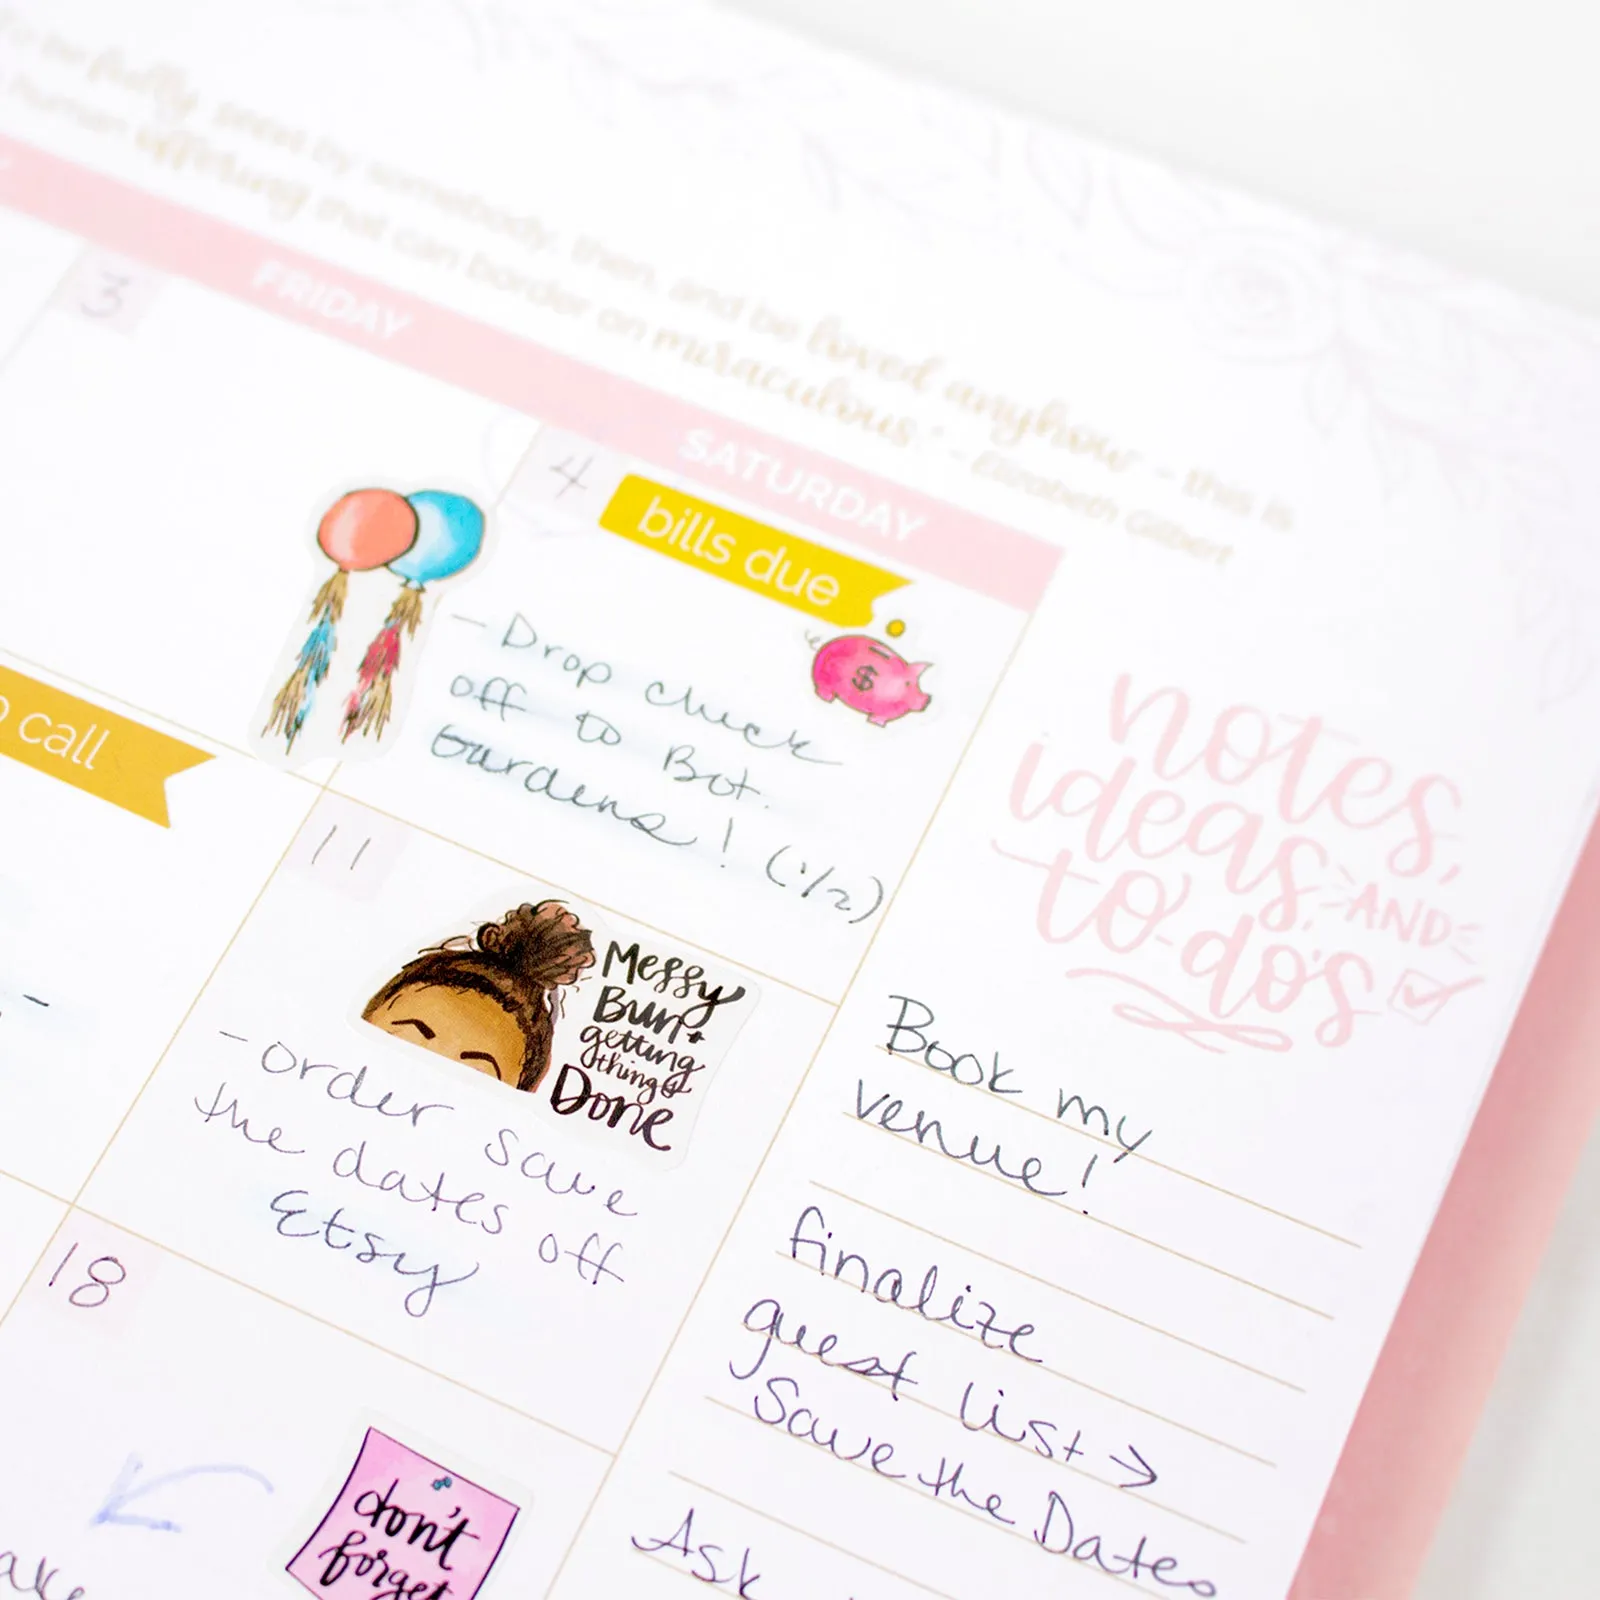 to be fully seen by somebody, then, and be loved anyhow - this is
human offering that can border on miraculous." - Elizabeth Gilbert
FRIDAY
SATURDAY
3
4
bills due
- Drop check
off to Bot.
Gardens! (1/2)
call
11
Messy
Bun +
getting
things
Done
- order save
the dates off
Etsy
18
don't
forget
notes,
ideas,
AND
to-do's
Book my
venue!
finalize
guest list →
Save the Dates
Ask